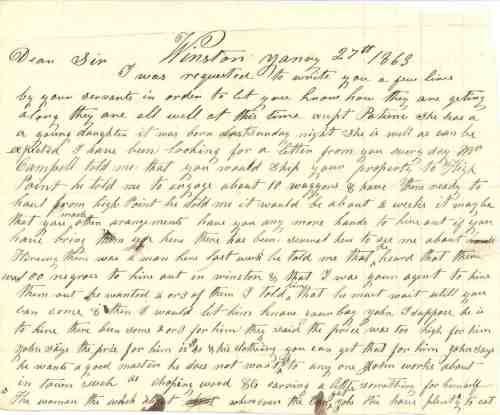 Winston Janry 27th 1863
Dear Sir
I was requested to write you a few lines
by your servants in order to let you know how they are getting
along they are all well at this time exept Patiene she has a
a young daughter it was born last sunday night she is well as can be
expected I have been looking for a letter from you every day Mr
Campbell told me that you would ship your property to High
Point he told me to engage about 10 waggons & have them ready to
haul from high Point he told me it would be about 2 weeks it maybe
that you made other arangements have you any more hands to hire out if you
have bring them here there has been several here to see me about
Hireing them was a man here last week he told me that heard that there
was 00 negroes to hire out in winston & that I was your agent to hire
them out he wanted 2 or 3 of them I told that he must wait until you
can come & then I would let him know your boy John I suppose he is
to hire there been some 2 or 3 for him they said the price was too high for him
John says the price for him is & his clothing you can get that for him John says
he wants a good master he does not want to any one John works about
in town such as choping wood & so earning a little something for himself
The woman the work about wherever the can get jobs the have plenty to eat